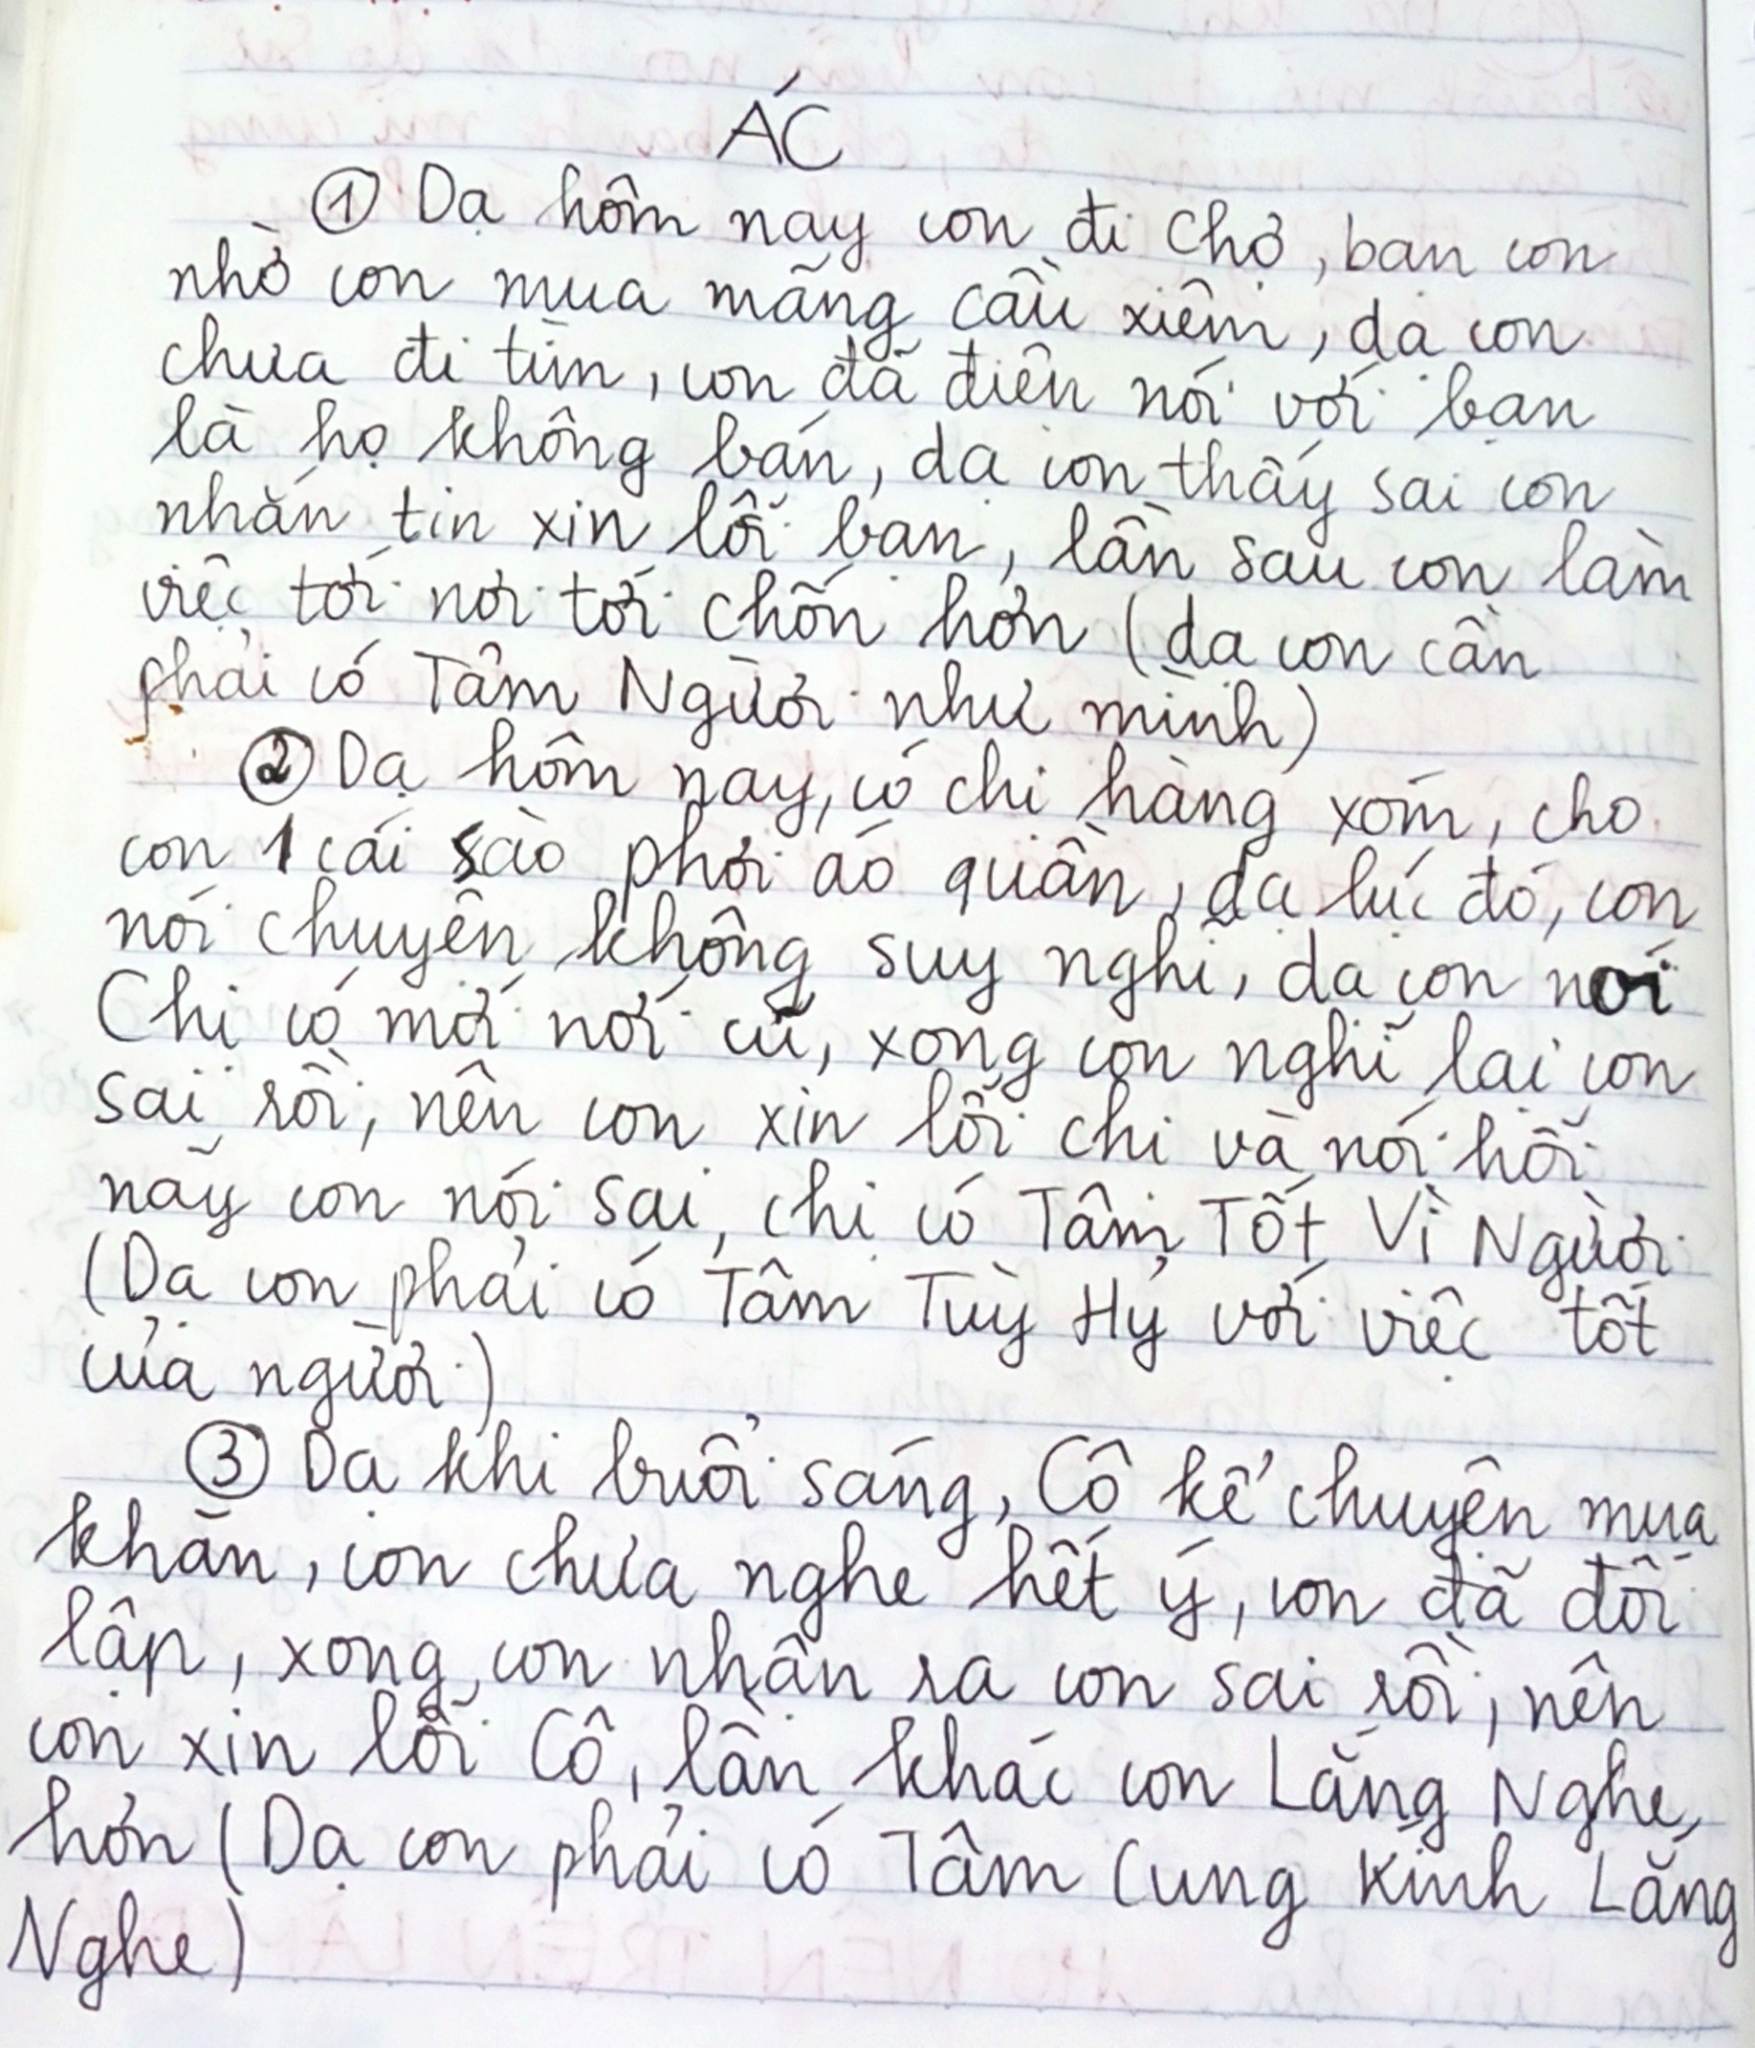 ÁC
① Dạ hôm nay con đi Chợ, bạn con
nhờ con mua mãng cầu xiêm, dạ con
chưa đi tìm, con đã điện nói với bạn
là họ không bán, dạ con thấy sai con
nhắn tin xin lỗi bạn, lần sau con làm
việc tới nơi tới chốn hơn (dạ con cần
phải có Tâm Người như mình)
② Dạ hôm nay, có chị hàng xóm, cho
con 1 cái sào phơi áo quần, dạ lúc đó, con
nói chuyện không suy nghĩ, dạ con nói
Chị có mới nới cũ, xong con nghĩ lại con
sai rồi, nên con xin lỗi chị và nói hồi
nãy con nói sai, chị có Tâm Tốt Vì Người
(Dạ con phải có Tâm Tùy Hỷ với việc tốt
của người)
③ Dạ khi buổi sáng, Cô kể chuyện mua
khăn, con chưa nghe hết ý, con đã đối
lập, xong con nhận ra con sai rồi, nên
con xin lỗi Cô, lần khác con Lắng Nghe
hơn (Dạ con phải có Tâm Cung Kính Lắng
Nghe)